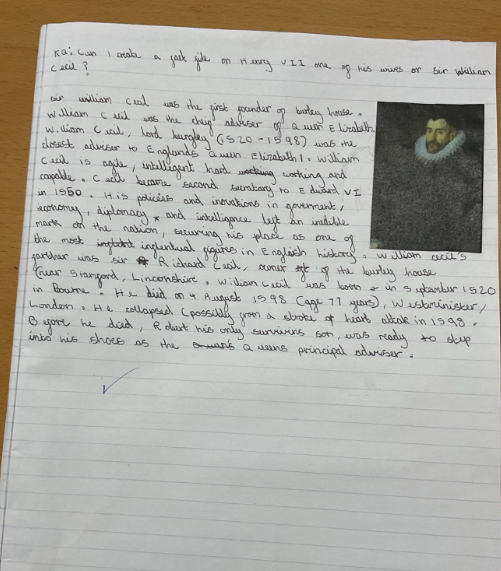 KQ: Can I create a fact file on Henry VII one of his wives or Sir William
Cecil?
Sir william Cecil was the first founder of burley house.
William Cecil was the chief adviser of Queen Elizabeth.
William Cecil, lord burghley (1520-1598) was the
closest adviser to Englands Queen Elizabeth I. William
Cecil is agile, intelligent hard working working and
capable. Cecil became second secretary to Edward VI
in 1550. His policies and inovations in goverment,
economy, diplomacy and intelligence left an indelible
mark on the nation, securing his place as one of
the most influntual figures in English history. William cecil's
farther was sir Richard Cecil, owner of the burley house
(near Stamford, Lincornshire. William Cecil was born in September 1520
in Bourne. He died on 4 August 1598 (age 77 years), Westerminister,
London. He collapsed (possibly from a stroke of heart attak in 1598.
Before he died, Robert his only surviving son, was ready to step
into his shoes as the Queens principal adviser.